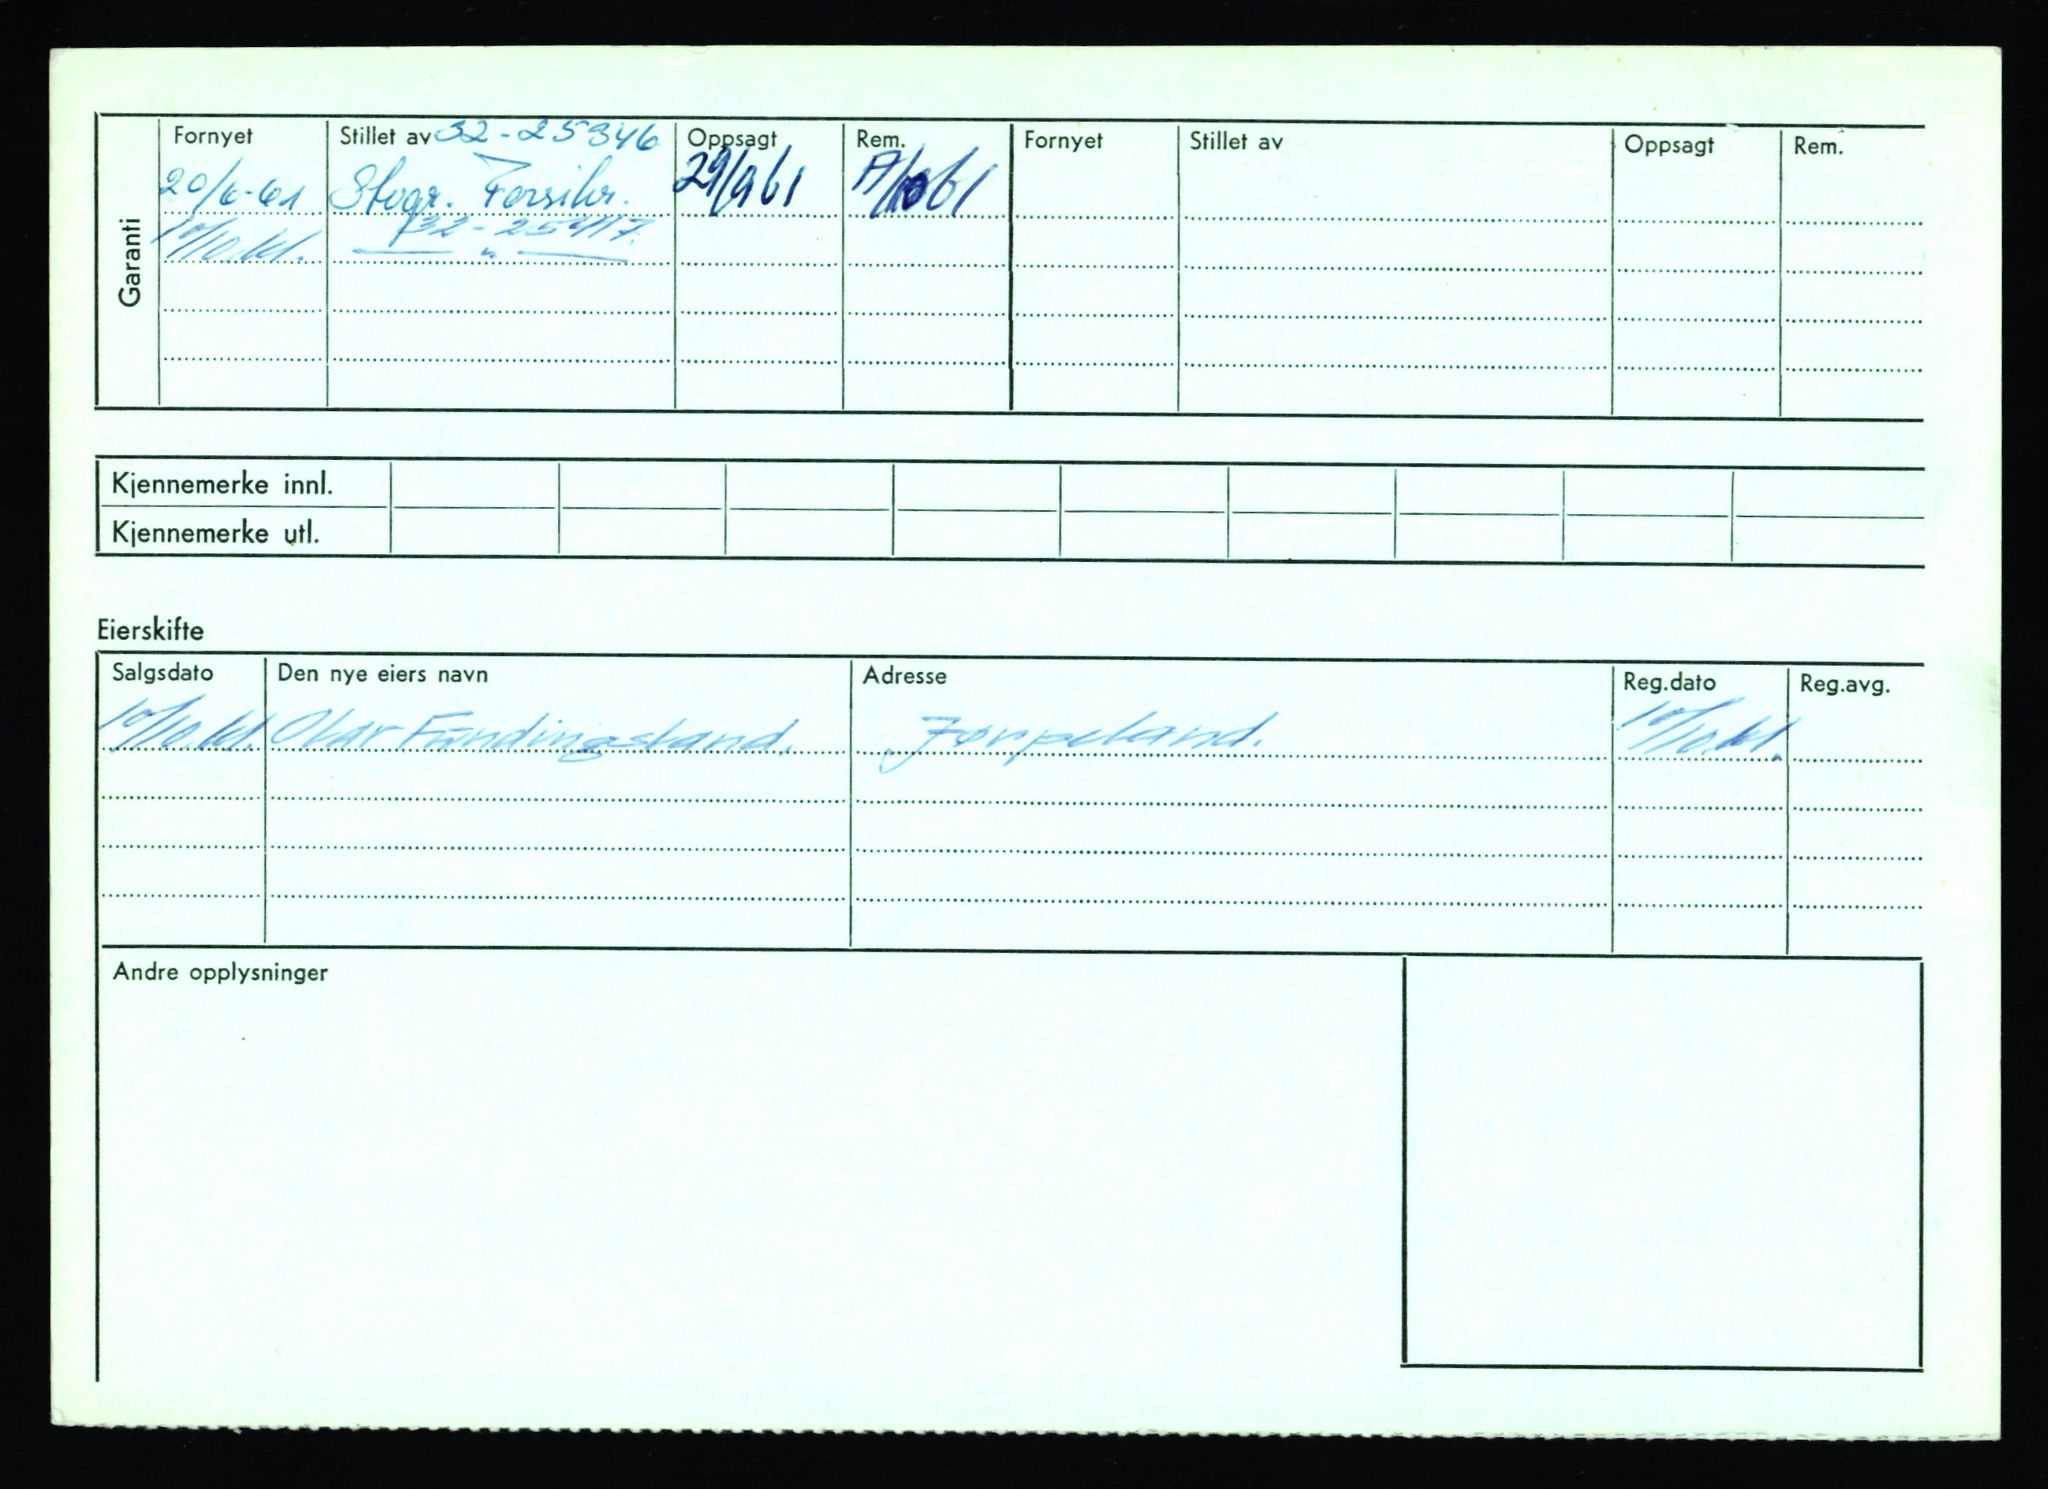 Garanti
Fornyet Stillet av 32-25346 Oppsagt Rem. Fornyet Stillet av Oppsagt Rem.
20/6-61 Stvgr. Forsikr. 29/9 61
10/10.61. 32-25417.
— " —
Kjennemerke innl.
Kjennemerke utl.
Eierskifte
Salgsdato Den nye eiers navn Adresse Reg.dato Reg.avg.
10/10.61. Olav Fundingsland. Jørpeland. 10/10.61.
Andre opplysninger